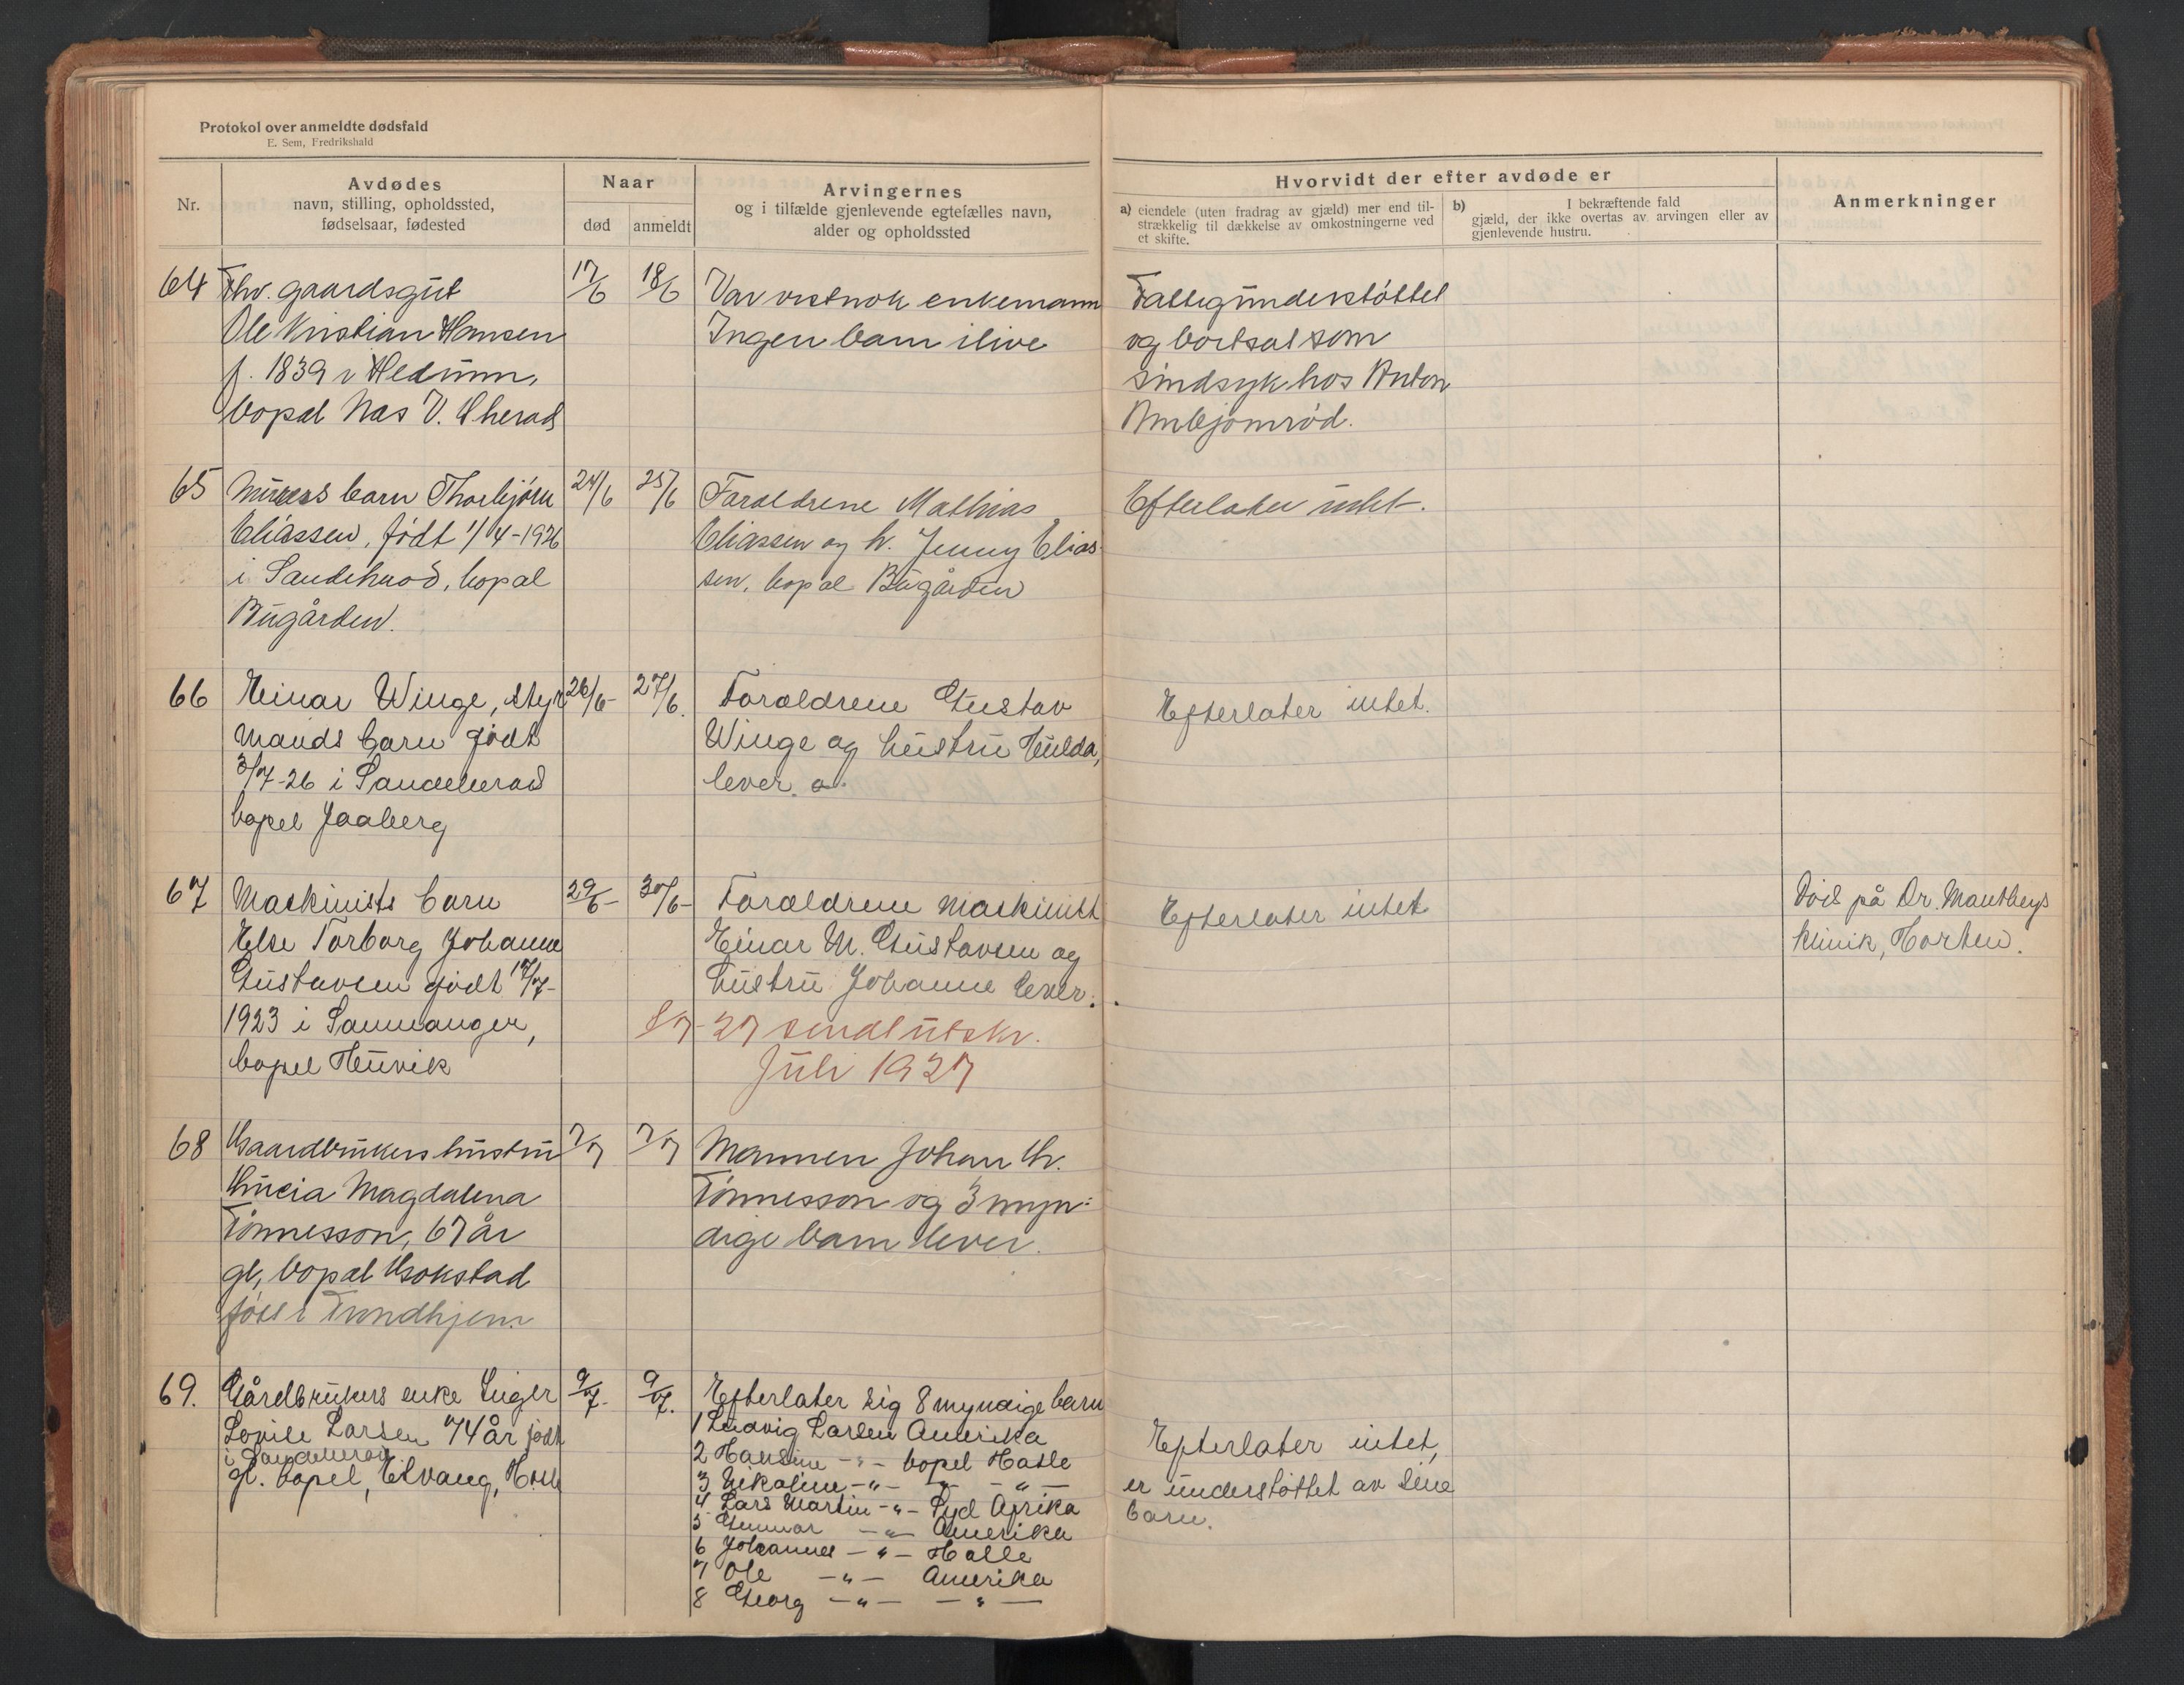 Protokol over anmeldte dødsfald
E. Sem, Fredrikshald
Nr.
Avdødes
navn, stilling, opholdssted,
fødselsaar, fødested
Naar
død
anmeldt
Arvingernes
og i tilfælde gjenlevende egtefælles navn,
alder og opholdssted
Hvorvidt der efter avdøde er
a) eiendele (uten fradrag av gjæld) mer end til-
strækkelig til dækkelse av omkostningerne ved
et skifte.
b) I bekræftende fald
gjæld, der ikke overtas av arvingen eller av
gjenlevende hustru.
Anmerkninger
64
Fhv. gaardsgut
Ole Kristian Hansen
f. 1839 i Hedrum,
bopæl Næs V.
17/6
18/6
Var vistnok enkemann
Ingen barn ilive
Fattigunderstøttet
og bortsat som
sindsyk hos Anton
65
Murers barn Thorbjørn
Eliassen, født 1/4-1926
i Sandeherad, bopæl
Bugården.
24/6
25/6
Forældrene Mathias
Eliassen og h. Jenny Elias-
sen, bopæl Bugården
Efterlater intet.
66
Einar Winge, styr
mands barn født
3/7-26 i Sandeherad
bopel Jaaberg
26/6-
27/6.
Forældrene Gustav
Winge og hustru Hulda,
lever.
Efterlater intet.
67
Maskinists barn
Else Torborg Johanne
Gustavsen født 17/7-
1923 i Samnanger,
bopel
29/6-
30/6-
Forældrene maskinist
Einar M. Gustavsen og
hustru Johanne lever.
Efterlater intet
Død på Dr.
Klinik, Horten.
8/7-27 sendt utskr.
Juli 1927
68
Gaardbrukers hustru
Magdalena
Tønnesson, 67 år
gl, bopæl Gokstad
født i Trondhjem
7/7
7/7
Mannen Johan Chr.
Tønnesson og 3 myn-
dige barn lever.
69.
Gårdbrukers enke Inger
Lovise Larsen 74 år født
i Sandeherad
gl. bopel,
9/7-
9/7.
Efterlater sig 8 myndige barn
1 Ludvig Larsen Amerika
2 Hansine -"- bopel Hasle
3 -"- -"- -"-
4 Lars Martin -"- Syd Afrika
5 Gunnar -"- Amerika
6 Johannes -"- Hasle
7 Ole -"- Amerika
8 Georg -"- -"-
Efterlater intet,
er understøttet av sine
barn.